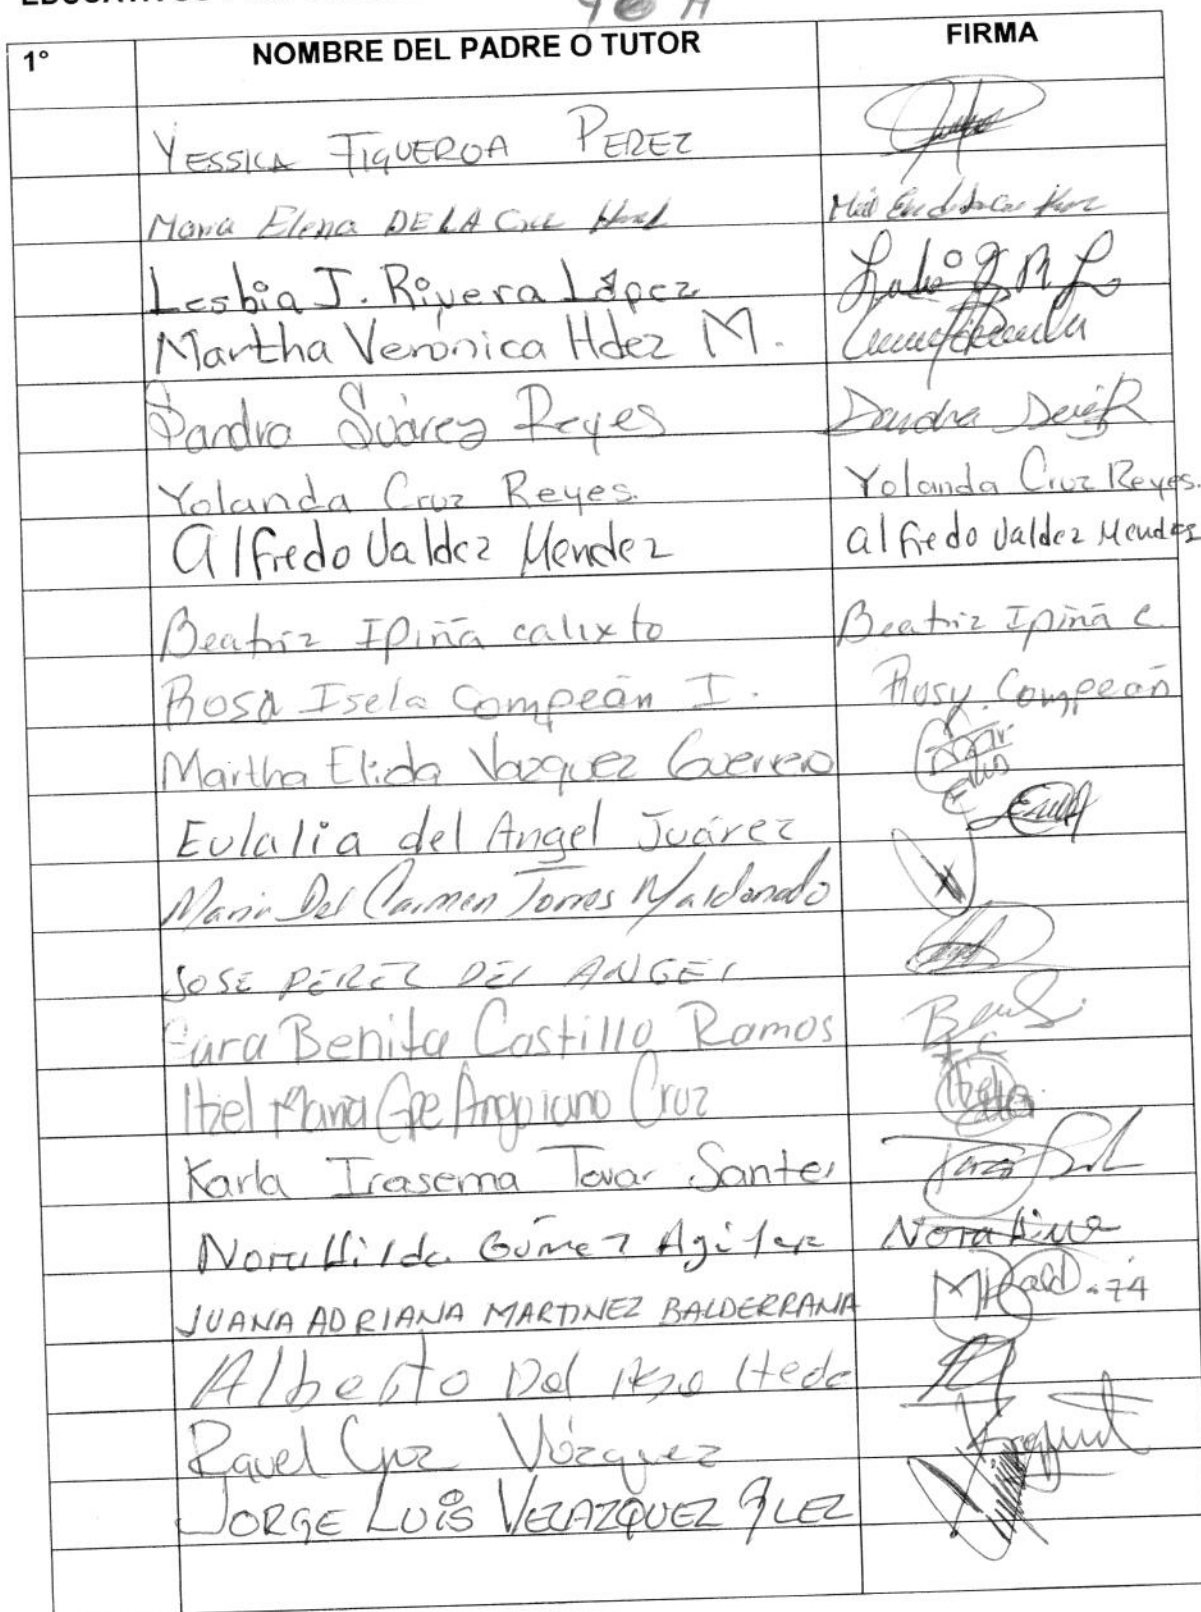 1° NOMBRE DEL PADRE O TUTOR FIRMA
YESSICA FIGUEROA PEREZ
Maria Elena DE LA Cruz
Lesbia J. Rivera López
Martha Verónica Hdez M.
Sandra Suárez Reyes
Yolanda Cruz Reyes. Yolanda Cruz Reyes.
Alfredo Valdez Mendez alfredo Valdez Mendez
Beatriz Ipiña calixto Beatriz Ipiña C.
Rosa Isela Compeán I. Rosy Compeán
Martha Elida Vazquez Guerrero
Eulalia del Angel Juárez
Maria Del Carmen Torres Maldonado
JOSE PEREZ DEL ANGEL
Sara Benita Castillo Ramos
Itiel Maria Gpe Angoiano Cruz
Karla Irasema Tovar
Nora Hilda Gómez
JUANA ADRIANA MARTINEZ BALDERRAMA
Alberto Del
Raquel Cruz Vázquez
JORGE LUIS VELAZQUEZ GLEZ